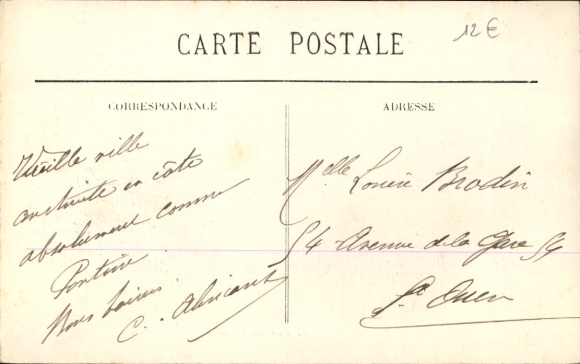 12€
CARTE POSTALE
CORRESPONDANCE
ADRESSE
Vieille ville
construite en côte
absolument comme
Pontoise.
Bons baisers.
C.
Melle Louise Brodin
54 Avenue de la Gare 54
St Ouen